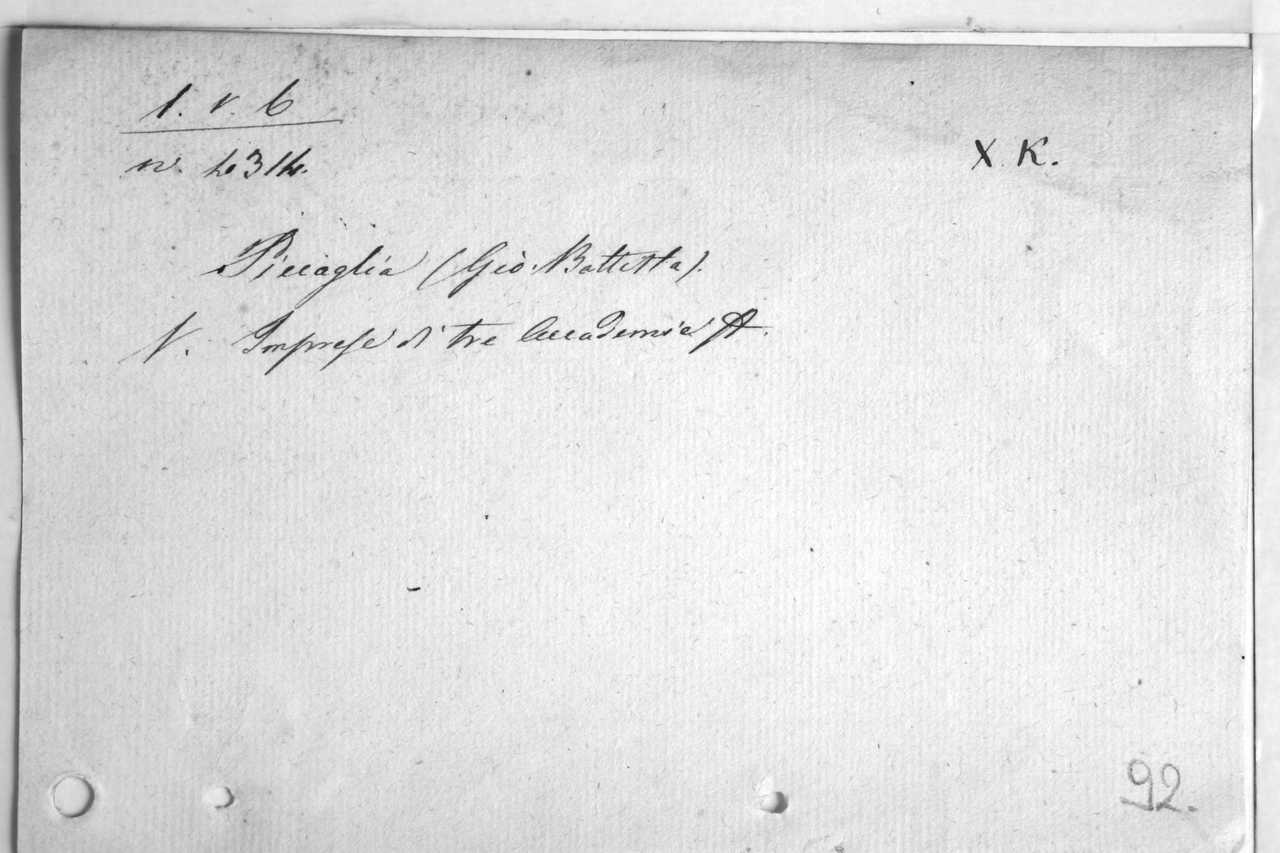 1. v. 6
X. K.
n. 4314.
Piccaglia (Gio: Battista).
V. Imprese di tre Accademie
92.